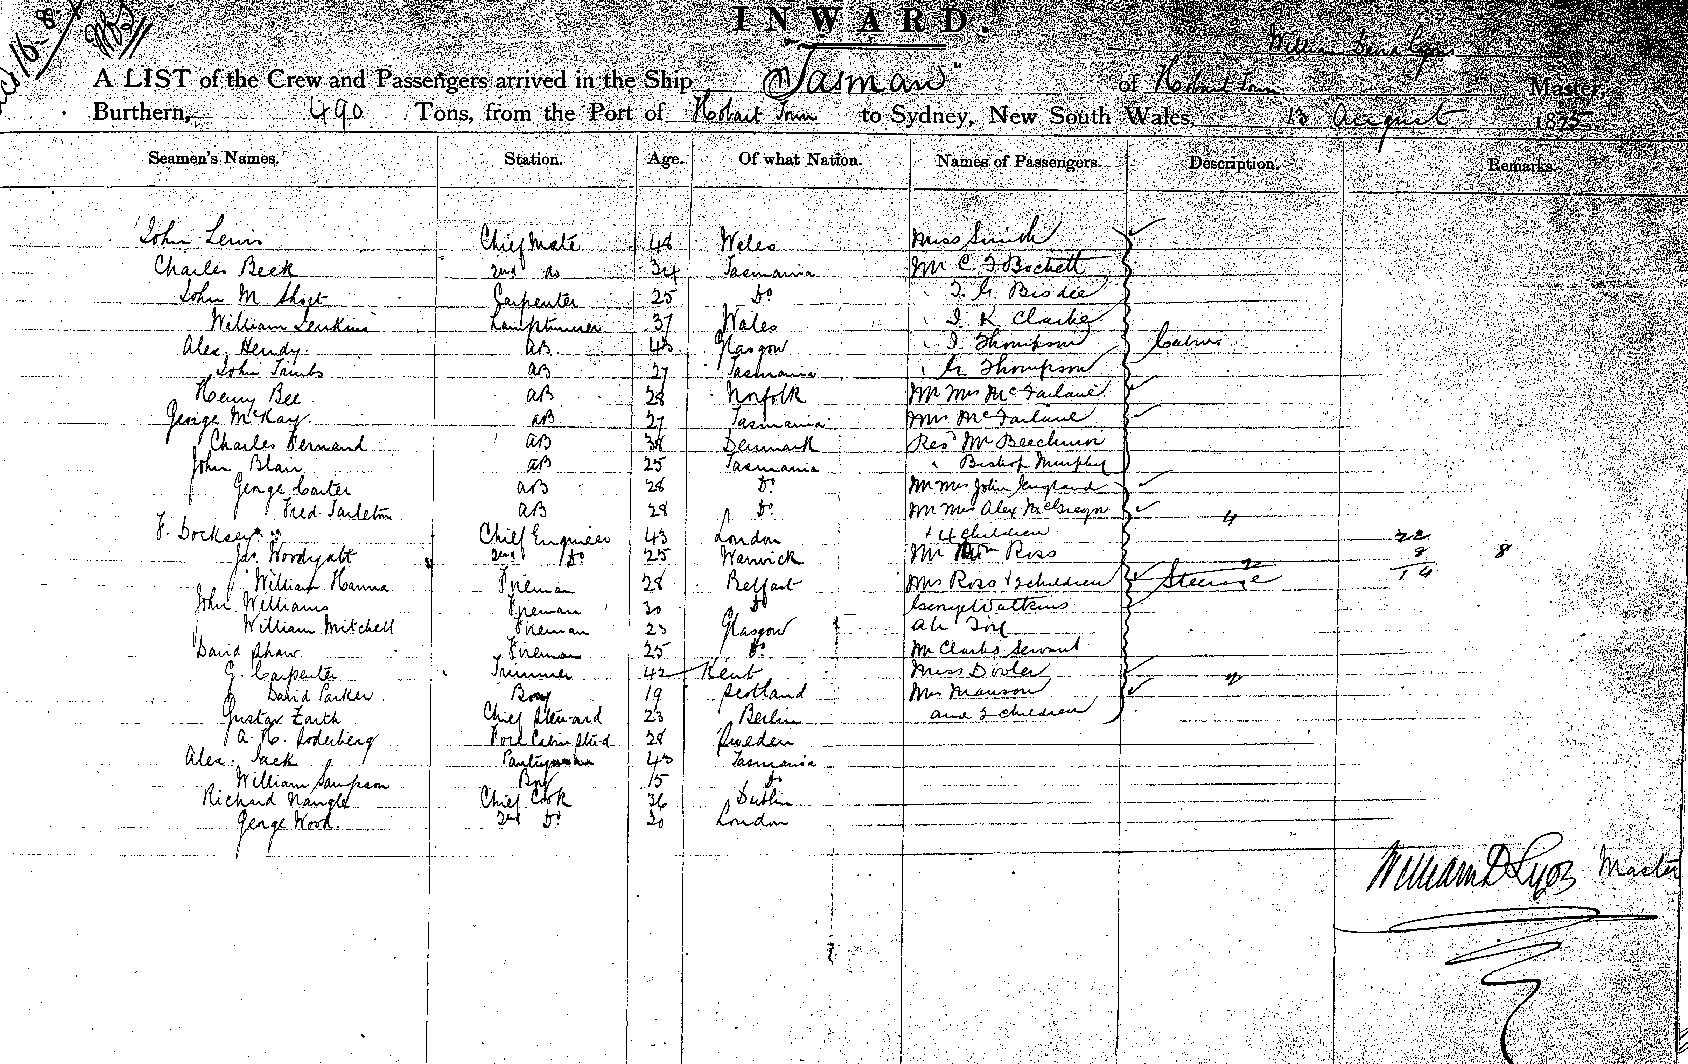 INWARD.
William
A LIST of the Crew and Passengers arrived in the Ship "Tasman" of Hobart Town Master,
Burthern, 490 Tons, from the Port of Hobart Town to Sydney, New South Wales, 13 August 1875
Seamen's Names. Station. Age. Of what Nation. Names of Passengers. Description. Remarks.
John Lewis Chief Mate 48 Wales Miss Smith
Charles Beck 2nd do 34 Tasmania Mr C. Bockett
John M Carpenter 25 Do Bisdee
William Jenkins Lamptrimmer 37 Wales K Clarke
Alex Hendy AB 43 Glasgow Thompson
John AB 27 Tasmania Thompson
Henry Bee AB 28 Norfolk Mr Mrs McFarlane
George McKay AB 27 Tasmania Mrs McFarlane
Charles Bernand AB 38 Denmark Revd Mr Beechinor
John Blair AB 25 Tasmania " Bishop Murphy
George Carter AB 28 Do Mr Mrs John England
Fred Tarleton AB 28 Do Mr Mrs Alex McGregor 4
F. Docksey Chief Engineer 43 London + 4 children 22
Jas. Woodyatt 2nd Do 25 Warwick Mr Ross 8 8
William Hanna Fireman 28 Belfast Mrs Ross + 2 children Steerage 14
John Williams Fireman 30 Do George Watkins
William Mitchell Fireman 23 Glasgow Ah
David Shaw Fireman 25 Do Mr Clarks Servant
G. Carpenter Trimmer 42 Kent Miss
David Parker Boy 19 Scotland Mrs Manson 2
Gustav Zarth Chief Steward 23 Berlin and 2 children
A. H. Soderberg Fore Cabin Stwd 28 Sweden
Alex. Jack Pantryman 43 Tasmania
William Sampson Boy 15 Do
Richard Nangle Chief Cook 36 Dublin
George Wood 2nd Do 30 London
William D Lyon Master